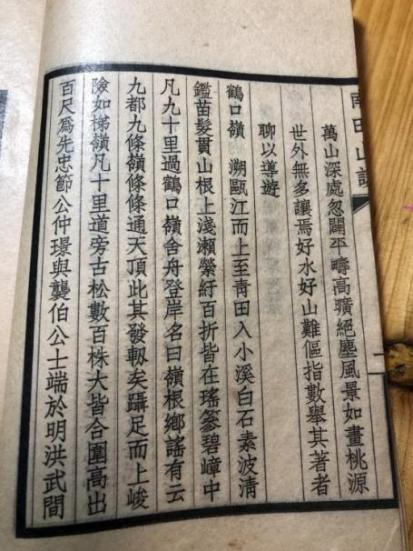 南田山誌
萬山深處忽闢平疇高曠絕塵風景如畫桃源
世外無多讓焉好水好山難傴指數舉其著者
聊以導遊
鶴口嶺　溯甌江而上至靑田入小溪白石素波淸
鑑苗髮貫山根上淺瀨縈紆百折皆在瑤篸碧嶂中
凡九十里過鶴口嶺舍舟登岸名曰嶺根鄉謠有云
九都九條嶺條條通天頂此其發軔矣躡足而上峻
險如梯嶺凡十里道旁古松數百株大皆合圍高出
百尺爲先忠節公仲璟與龔伯公士端於明洪武間
一